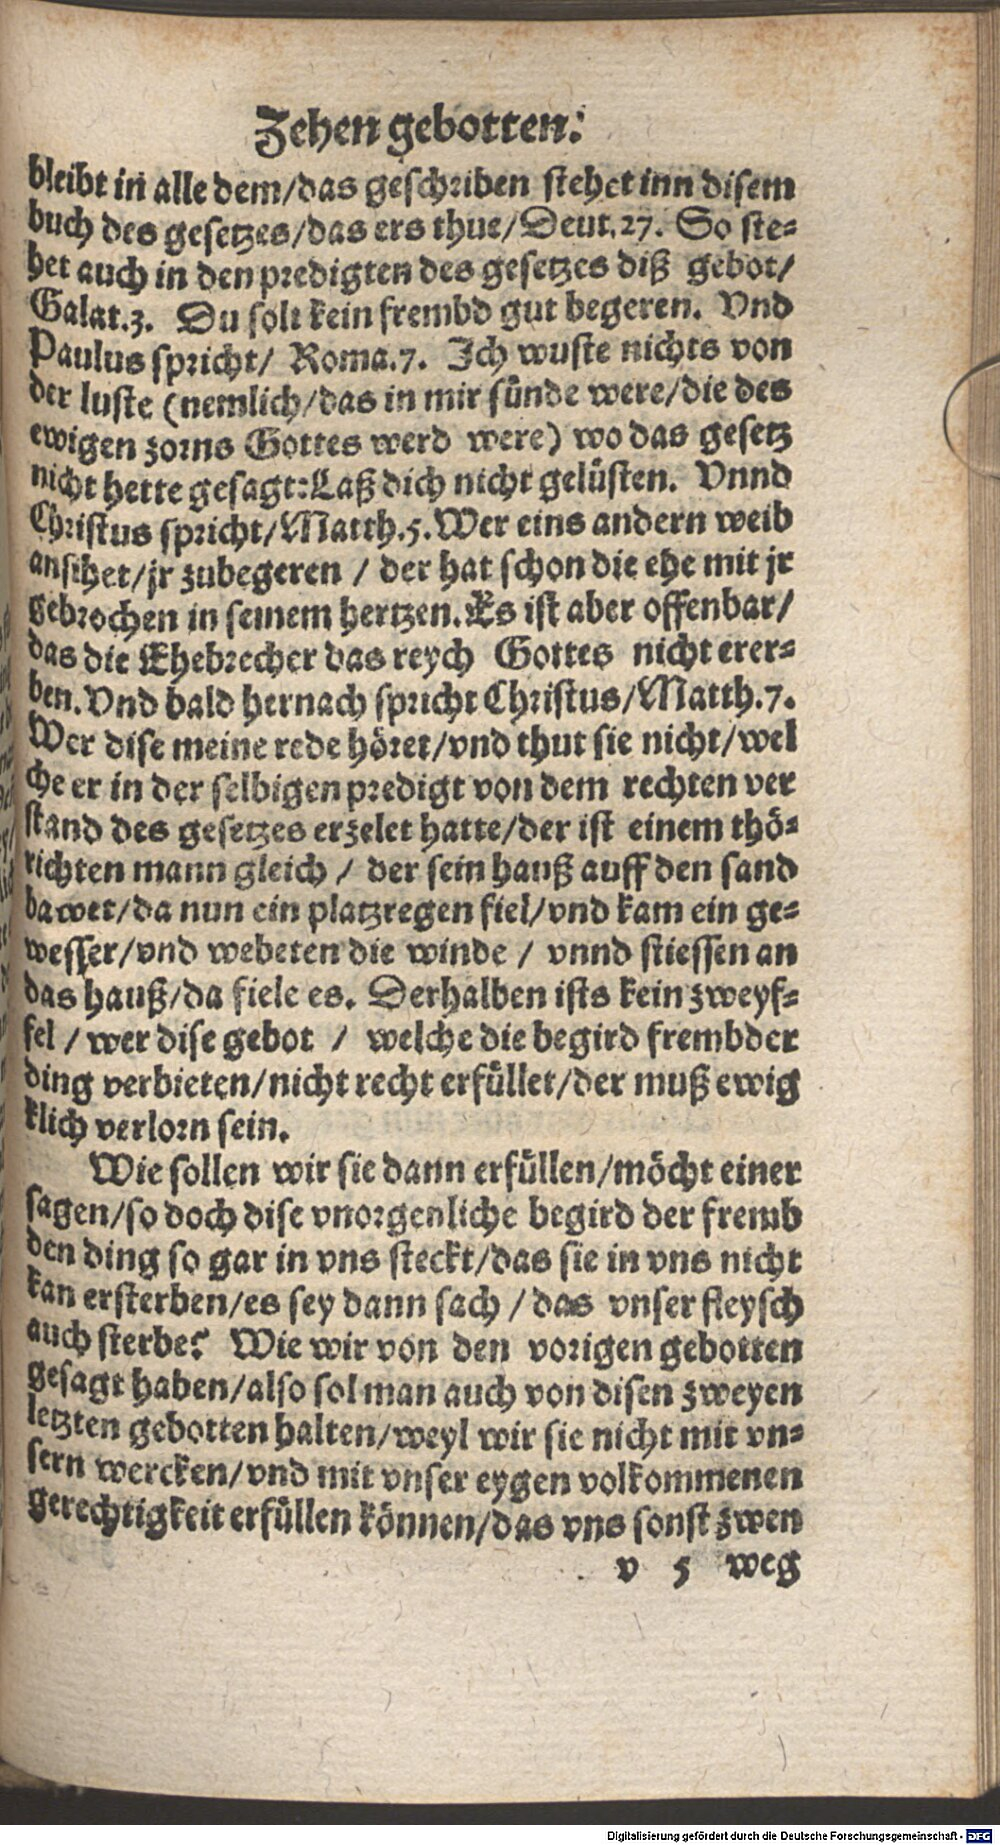 Zehen gebotten.
bleibt in alle dem/das geschriben stehet inn disem
buch des gesetzes/das ers thue/Deut.27. So ste-
het auch in den predigten des gesetzes diß gebot/
Galat.3. Du solt kein frembd gut begeren. Vnd
Paulus spricht/ Roma.7. Ich wuste nichts von
der luste (nemlich/das in mir sünde were/die des
ewigen zorns Gottes werd were) wo das gesetz
nicht hette gesagt: Laß dich nicht gelüsten. Vnnd
Christus spricht/Matth.5. Wer eins andern weib
ansihet/jr zubegeren / der hat schon die ehe mit jr
gebrochen in seinem hertzen. Es ist aber offenbar/
das die Ehebrecher das reych Gottes nicht erer-
ben. Vnd bald hernach spricht Christus/Matth.7.
Wer dise meine rede höret/vnd thut sie nicht/wel
che er in der selbigen predigt von dem rechten ver
stand des gesetzes erzelet hatte/der ist einem thö-
richten mann gleich / der sein hauß auff den sand
bawet/da nun ein platzregen fiel/vnd kam ein ge-
wesser/vnd webeten die winde / vnnd stiessen an
das hauß/da fiele es. Derhalben ists kein zweyf-
fel / wer dise gebot / welche die begird frembder
ding verbieten/nicht recht erfüllet/der muß ewig
klich verlorn sein.
Wie sollen wir sie dann erfüllen/möcht einer
sagen/so doch dise vnorgenliche begird der fremb
den ding so gar in vns steckt/das sie in vns nicht
kan ersterben/es sey dann sach / das vnser fleysch
auch sterbe? Wie wir von den vorigen gebotten
gesagt haben/also sol man auch von disen zweyen
letzten gebotten halten/weyl wir sie nicht mit vn-
sern wercken/vnd mit vnser eygen volkommenen
gerechtigkeit erfüllen können/das vns sonst zwen
v 5 weg
Digitalisierung gefördert durch die Deutsche Forschungsgemeinschaft - DFG